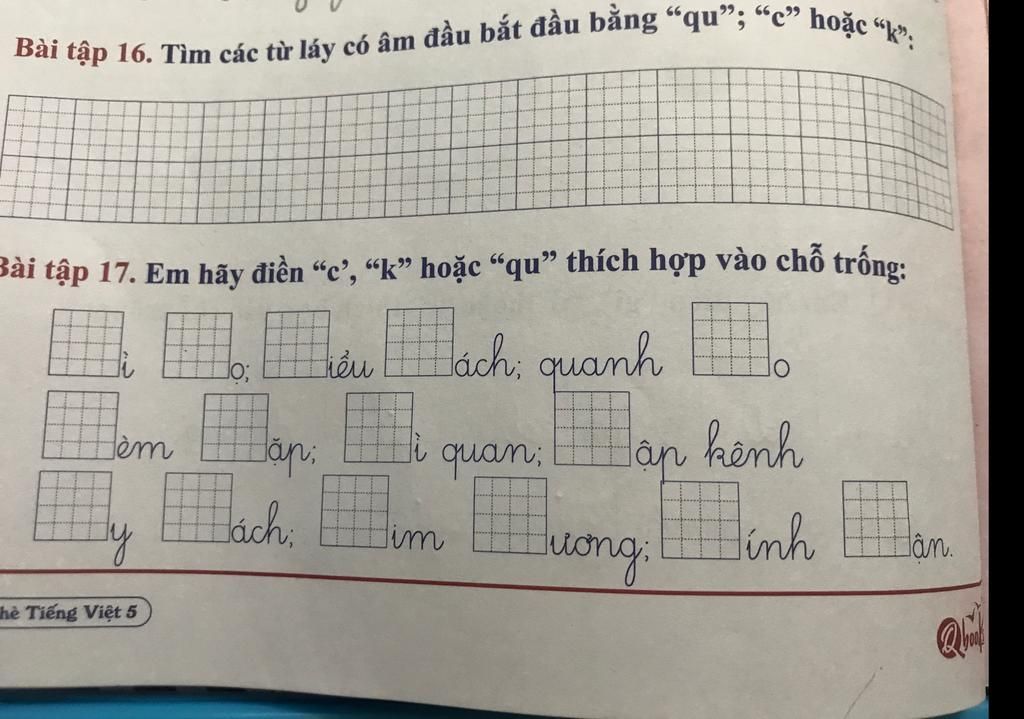 Bài tập 16. Tìm các từ láy có âm đầu bắt đầu bằng “qu”; “c” hoặc “k”:
Bài tập 17. Em hãy điền “c’, “k” hoặc “qu” thích hợp vào chỗ trống:
ỉ ọ; iểu ách; quanh o
èm ặp; ì quan; ập kênh
y ách; im ương; ính ận.
hè Tiếng Việt 5
Qbooks